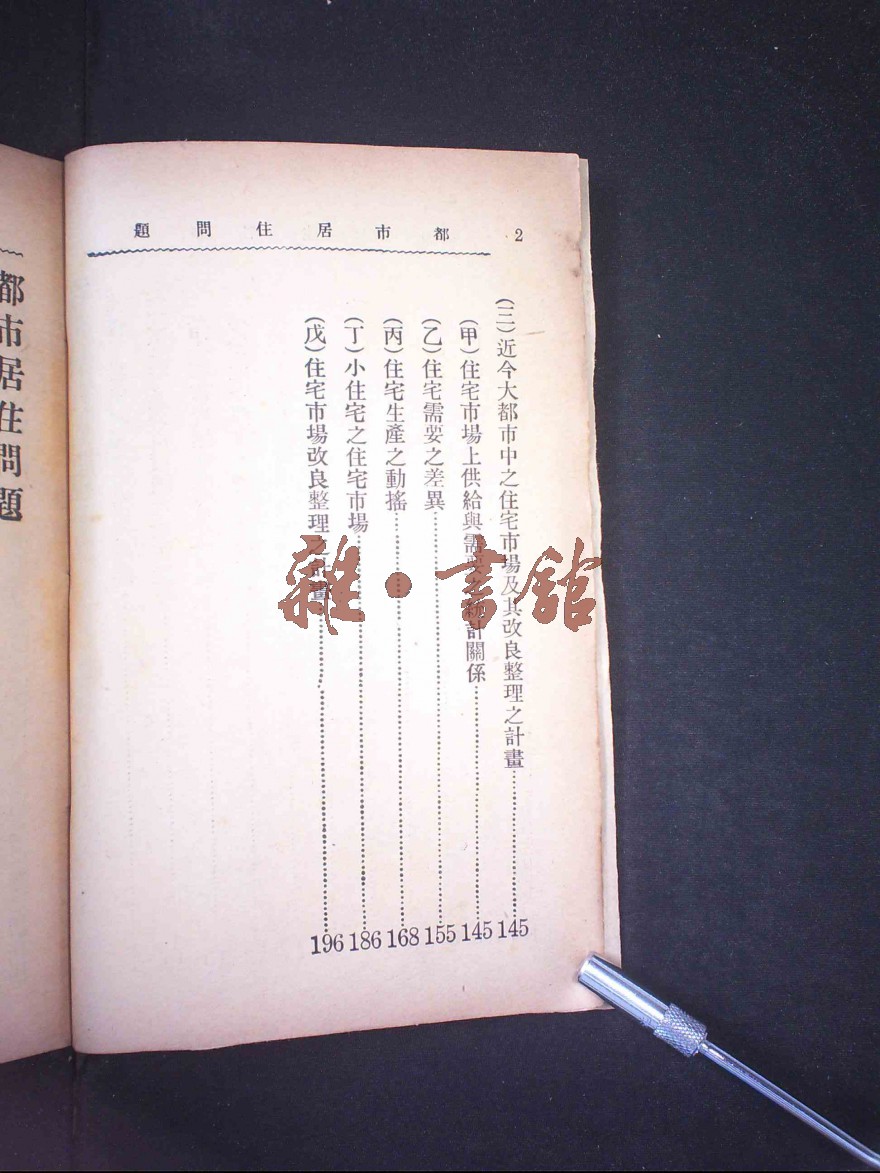 2 都市居住問題
(三)近今大都市中之住宅市場及其改良整理之計畫 145
(甲)住宅市場上供給與需要之統計關係 145
(乙)住宅需要之差異 155
(丙)住宅生產之動搖 168
(丁)小住宅之住宅市場 186
(戊)住宅市場改良整理之計畫 196
都市居住問題
雜·書館